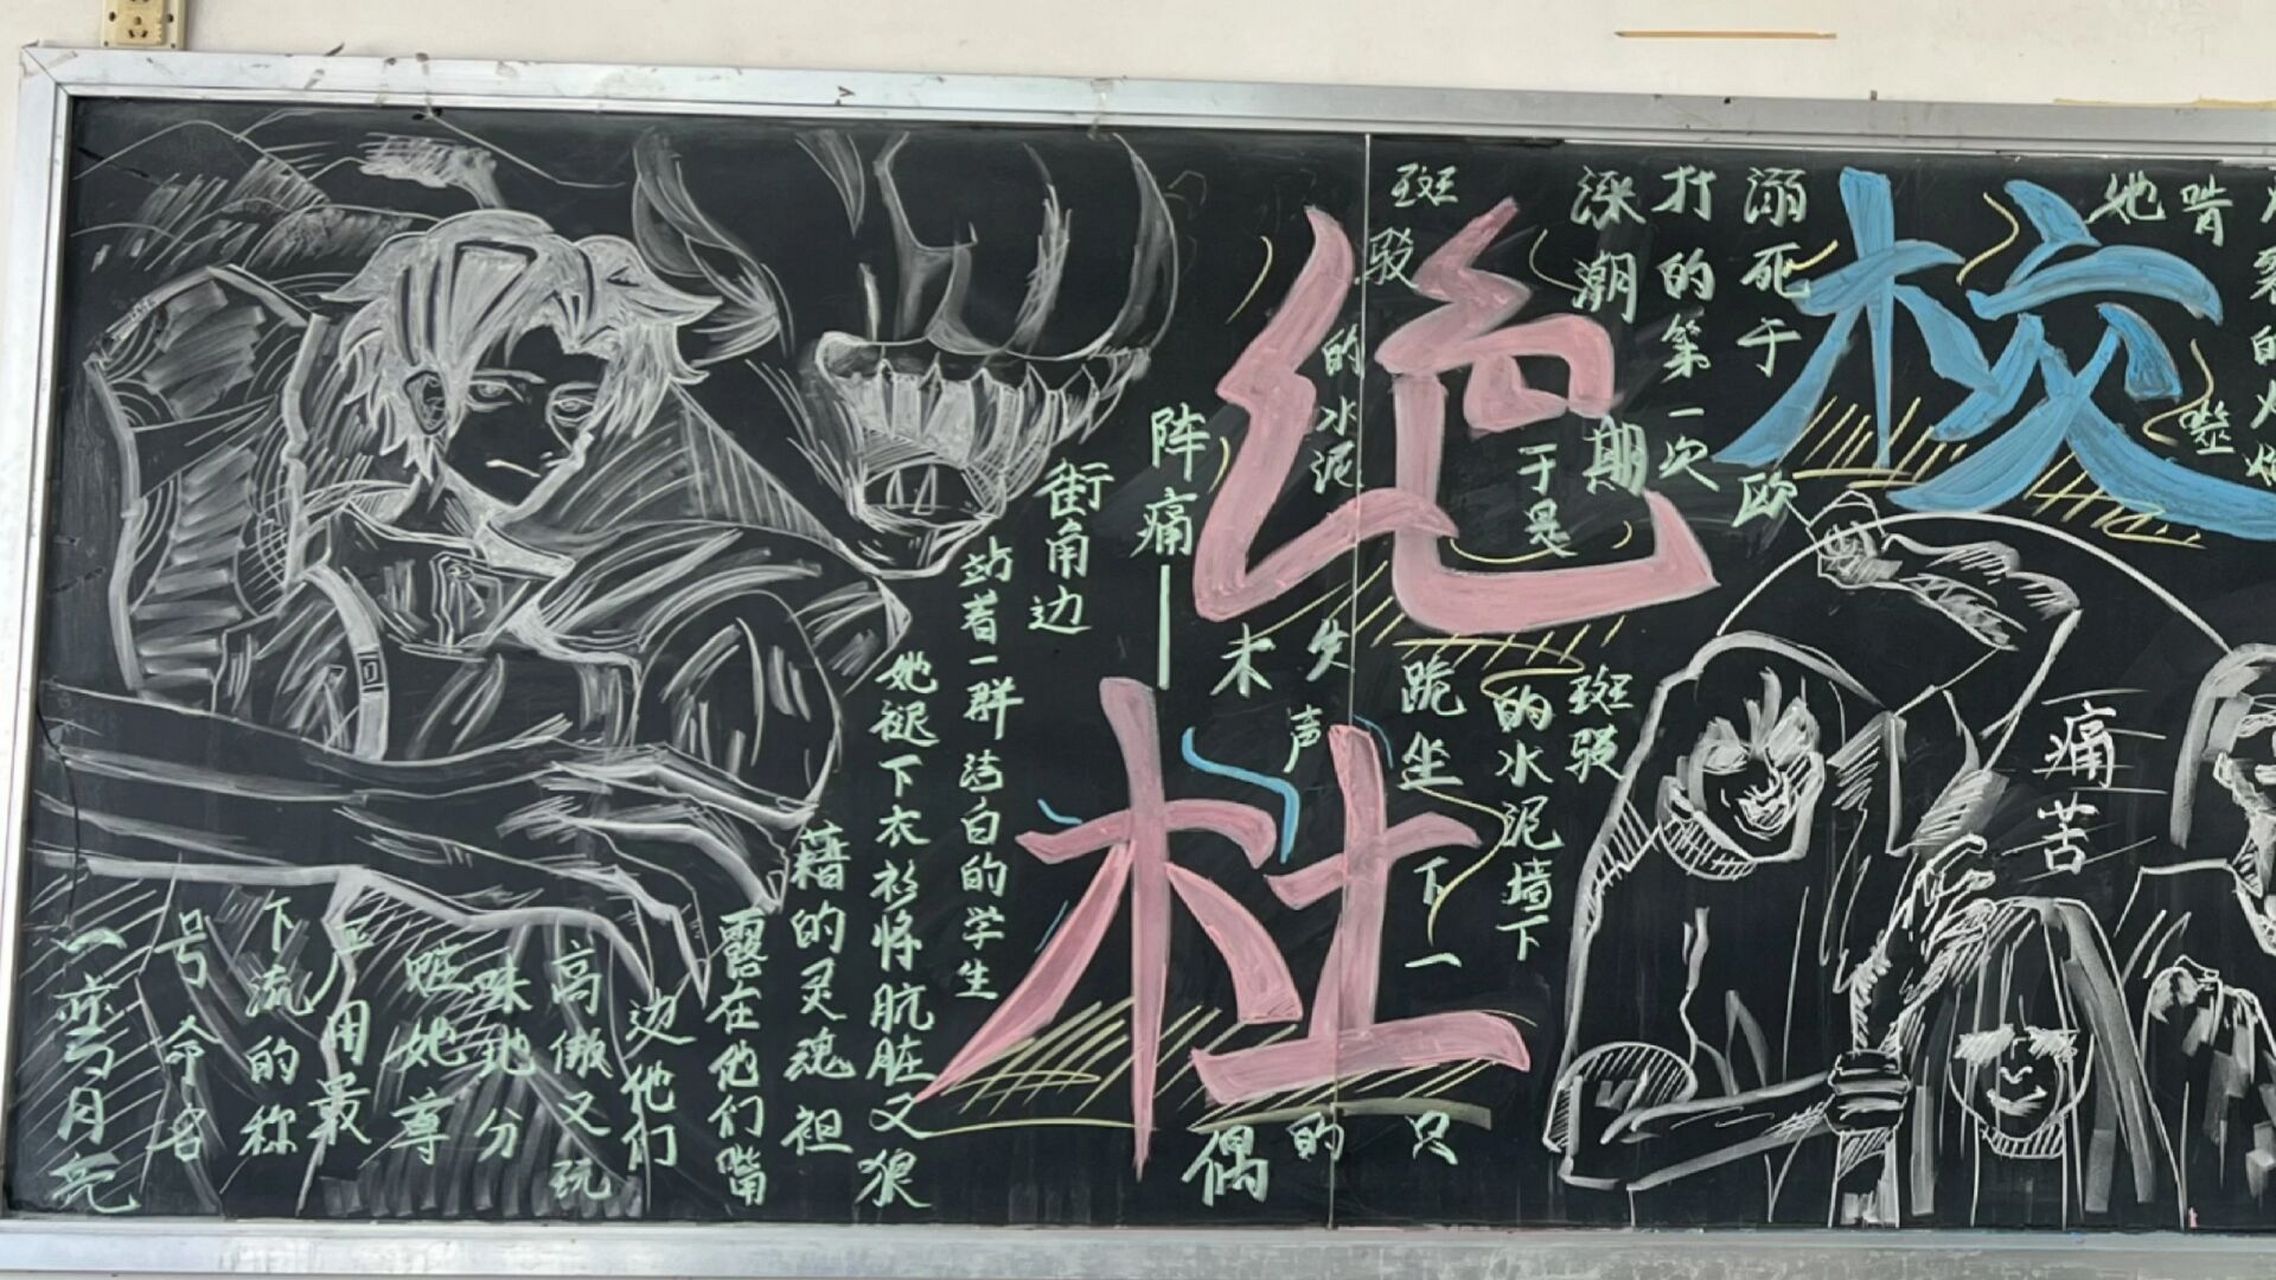 绝
校
杜
她啃
噬
溺死于欧
打的第一次
深潮期
于是
斑驳的水泥墙下
跪坐下一只
斑驳的水泥
失声的
木偶
阵痛——
街角边
站着一群洁白的学生
她褪下衣衫将肮脏又狼
藉的灵魂袒
露在他们嘴
边他们
高傲又玩
味地分
她尊
严用最
下流的称
号命名
一弯月亮
痛苦